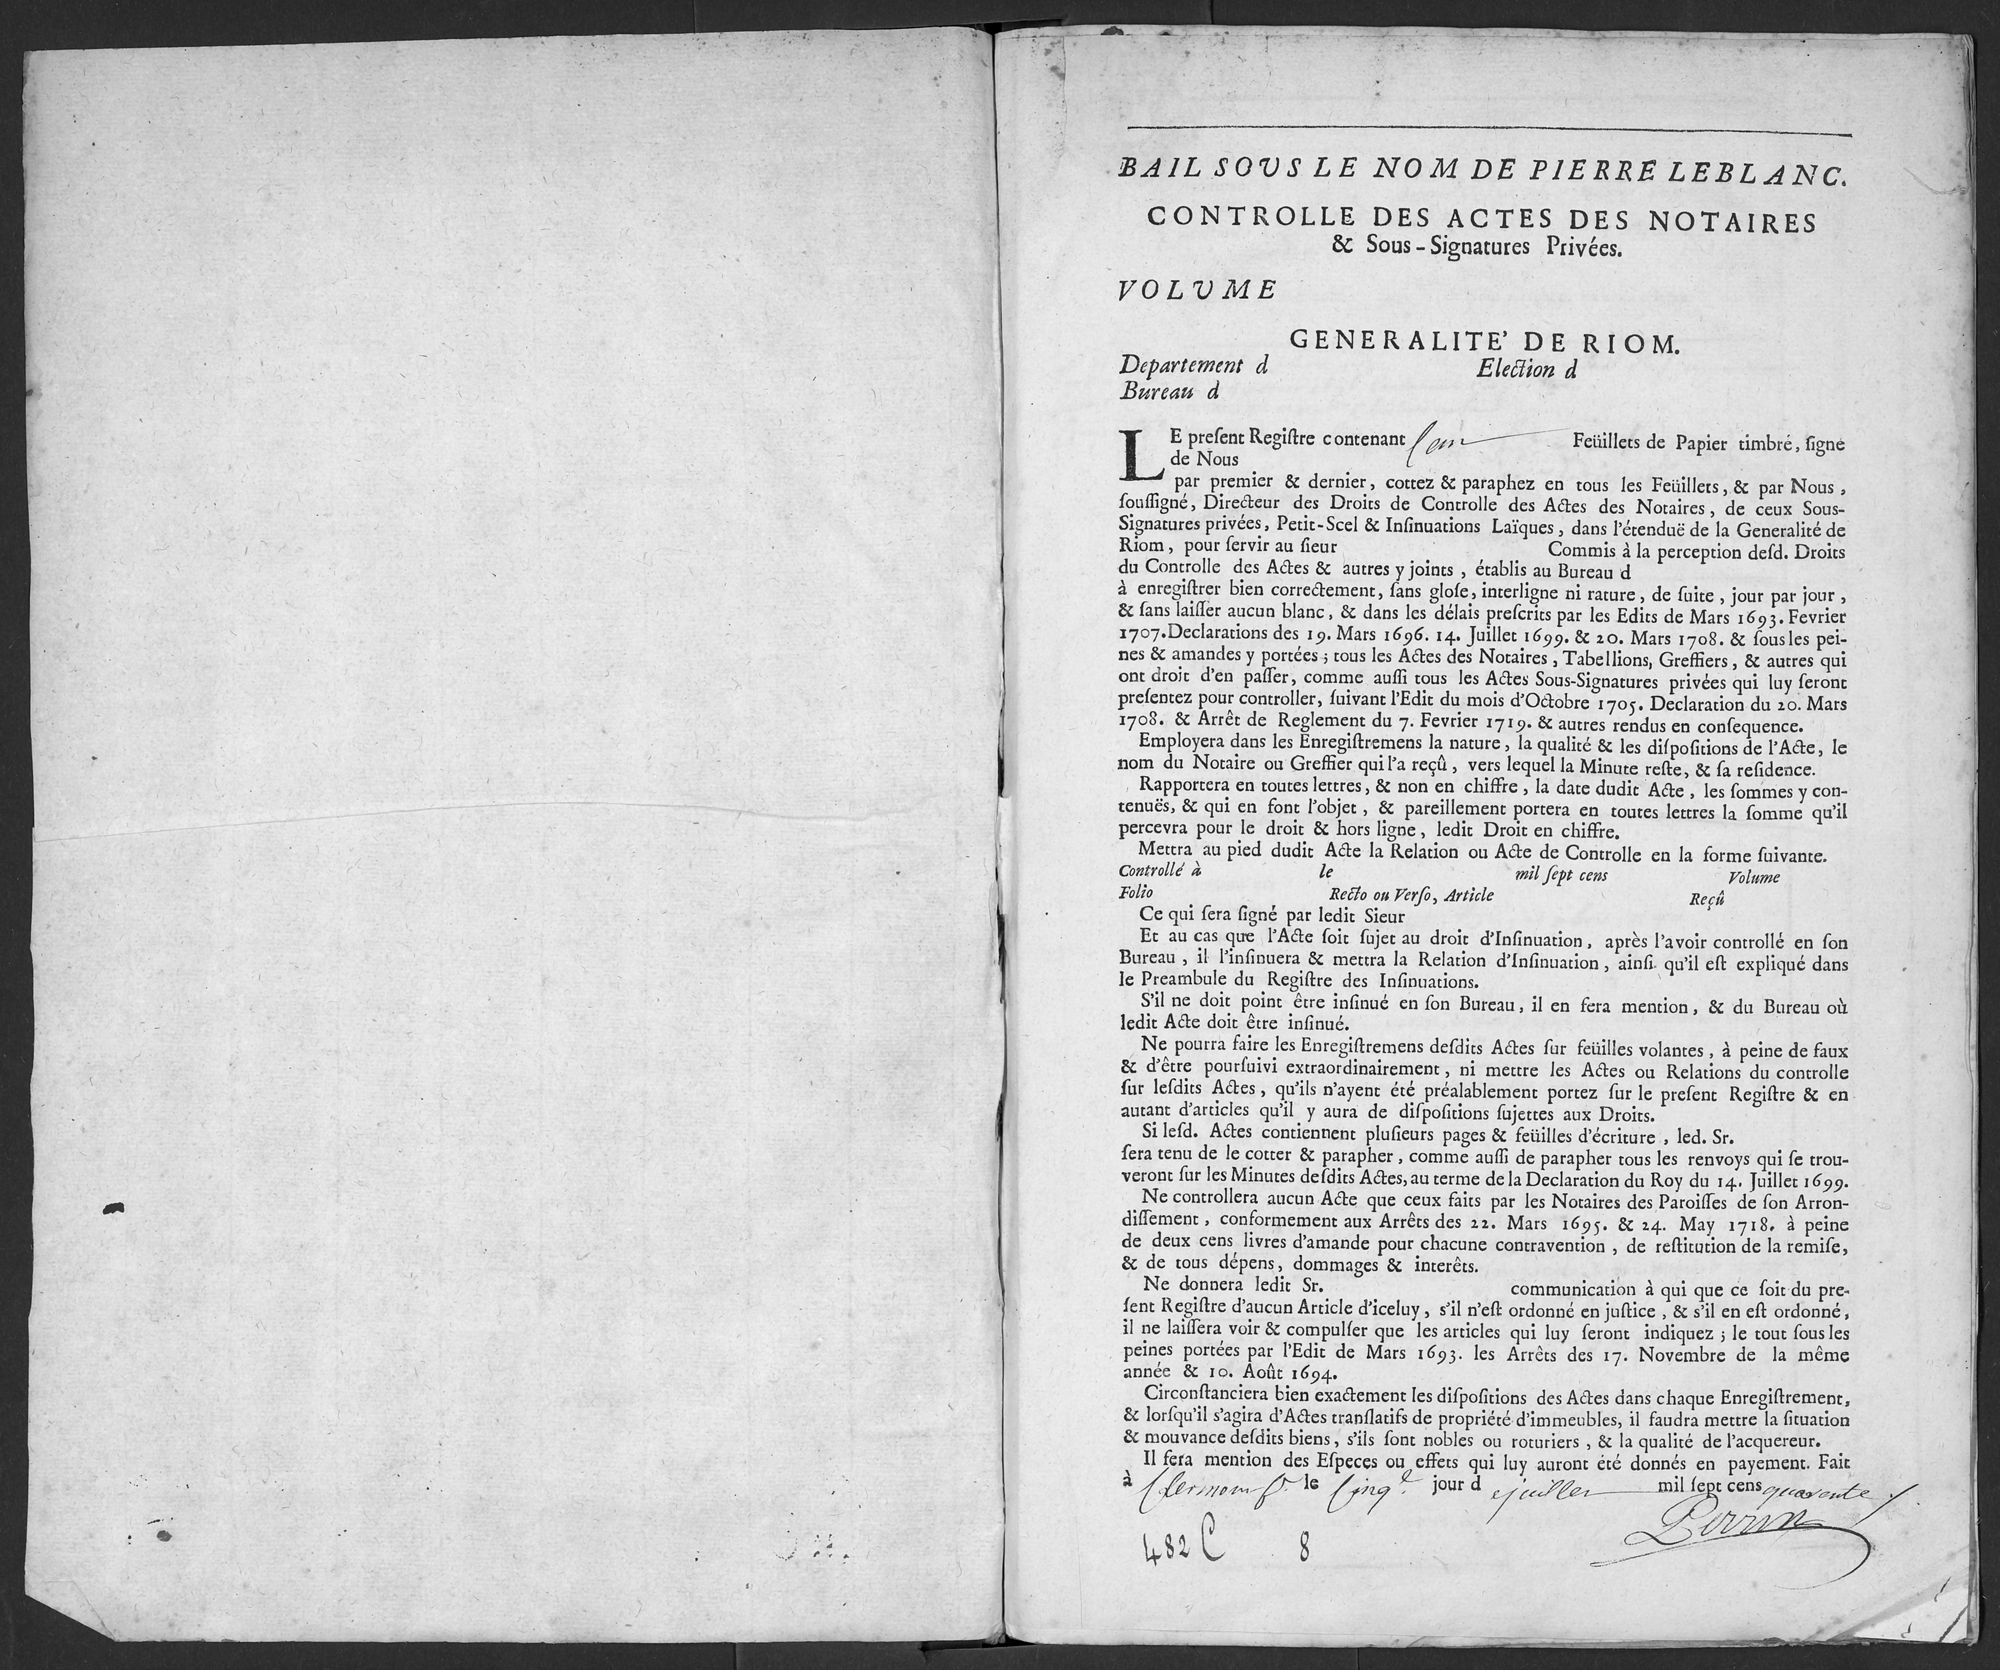 BAIL SOUS LE NOM DE PIERRE LEBLANC.
CONTROLLE DES ACTES DES NOTAIRES
& Sous-Signatures Privées.
VOLUME
GENERALITE' DE RIOM.
Departement d Election d
Bureau d
LE preſent Regiſtre contenant Cent Feüillets de Papier timbré, ſigné
de Nous
par premier & dernier, cottez & paraphez en tous les Feüillets, & par Nous,
ſouſſigné, Directeur des Droits de Controlle des Actes des Notaires, de ceux Sous-
Signatures privées, Petit-Scel & Inſinuations Laïques, dans l'étenduë de la Generalité de
Riom, pour ſervir au ſieur Commis à la perception deſd. Droits
du Controlle des Actes & autres y joints, établis au Bureau d
à enregiſtrer bien correctement, ſans gloſe, interligne ni rature, de ſuite, jour par jour,
& ſans laiſſer aucun blanc, & dans les délais preſcrits par les Edits de Mars 1693. Fevrier
1707. Declarations des 19. Mars 1696. 14. Juillet 1699. & 20. Mars 1708. & ſous les pei-
nes & amandes y portées; tous les Actes des Notaires, Tabellions, Greffiers, & autres qui
ont droit d'en paſſer, comme auſſi tous les Actes Sous-Signatures privées qui luy ſeront
preſentez pour controller, ſuivant l'Edit du mois d'Octobre 1705. Declaration du 20. Mars
1708. & Arrêt de Reglement du 7. Fevrier 1719. & autres rendus en conſequence.
Employera dans les Enregiſtremens la nature, la qualité & les diſpoſitions de l'Acte, le
nom du Notaire ou Greffier qui l'a reçû, vers lequel la Minute reſte, & ſa reſidence.
Rapportera en toutes lettres, & non en chiffre, la date dudit Acte, les ſommes y con-
tenuës, & qui en font l'objet, & pareillement portera en toutes lettres la ſomme qu'il
percevra pour le droit & hors ligne, ledit Droit en chiffre.
Mettra au pied dudit Acte la Relation ou Acte de Controlle en la forme ſuivante.
Controllé à le mil ſept cens Volume
Folio Recto ou Verſo, Article Reçû
Ce qui ſera ſigné par ledit Sieur
Et au cas que l'Acte ſoit ſujet au droit d'Inſinuation, après l'avoir controllé en ſon
Bureau, il l'inſinuera & mettra la Relation d'Inſinuation, ainſi qu'il eſt expliqué dans
le Preambule du Regiſtre des Inſinuations.
S'il ne doit point être inſinué en ſon Bureau, il en fera mention, & du Bureau où
ledit Acte doit être inſinué.
Ne pourra faire les Enregiſtremens deſdits Actes ſur feüilles volantes, à peine de faux
& d'être pourſuivi extraordinairement, ni mettre les Actes ou Relations du controlle
ſur leſdits Actes, qu'ils n'ayent été préalablement portez ſur le preſent Regiſtre & en
autant d'articles qu'il y aura de diſpoſitions ſujettes aux Droits.
Si leſd. Actes contiennent pluſieurs pages & feüilles d'écriture, led. Sr.
ſera tenu de le cotter & parapher, comme auſſi de parapher tous les renvoys qui ſe trou-
veront ſur les Minutes deſdits Actes, au terme de la Declaration du Roy du 14. Juillet 1699.
Ne controllera aucun Acte que ceux faits par les Notaires des Paroiſſes de ſon Arron-
diſſement, conformement aux Arrêts des 22. Mars 1695. & 24. May 1718. à peine
de deux cens livres d'amande pour chacune contravention, de reſtitution de la remiſe,
& de tous dépens, dommages & interêts.
Ne donnera ledit Sr. communication à qui que ce ſoit du pre-
ſent Regiſtre d'aucun Article d'iceluy, s'il n'eſt ordonné en juſtice, & s'il en eſt ordonné,
il ne laiſſera voir & compulſer que les articles qui luy ſeront indiquez; le tout ſous les
peines portées par l'Edit de Mars 1693. les Arrêts des 17. Novembre de la même
année & 10. Août 1694.
Circonſtanciera bien exactement les diſpoſitions des Actes dans chaque Enregiſtrement,
& lorſqu'il s'agira d'Actes tranſlatifs de propriété d'immeubles, il faudra mettre la ſituation
& mouvance deſdits biens, s'ils ſont nobles ou roturiers, & la qualité de l'acquereur.
Il fera mention des Eſpeces ou effets qui luy auront été donnés en payement. Fait
à Clermont fd. le Cinqe. jour d e juillet mil ſept cens quarente
Perrin
482 C 8